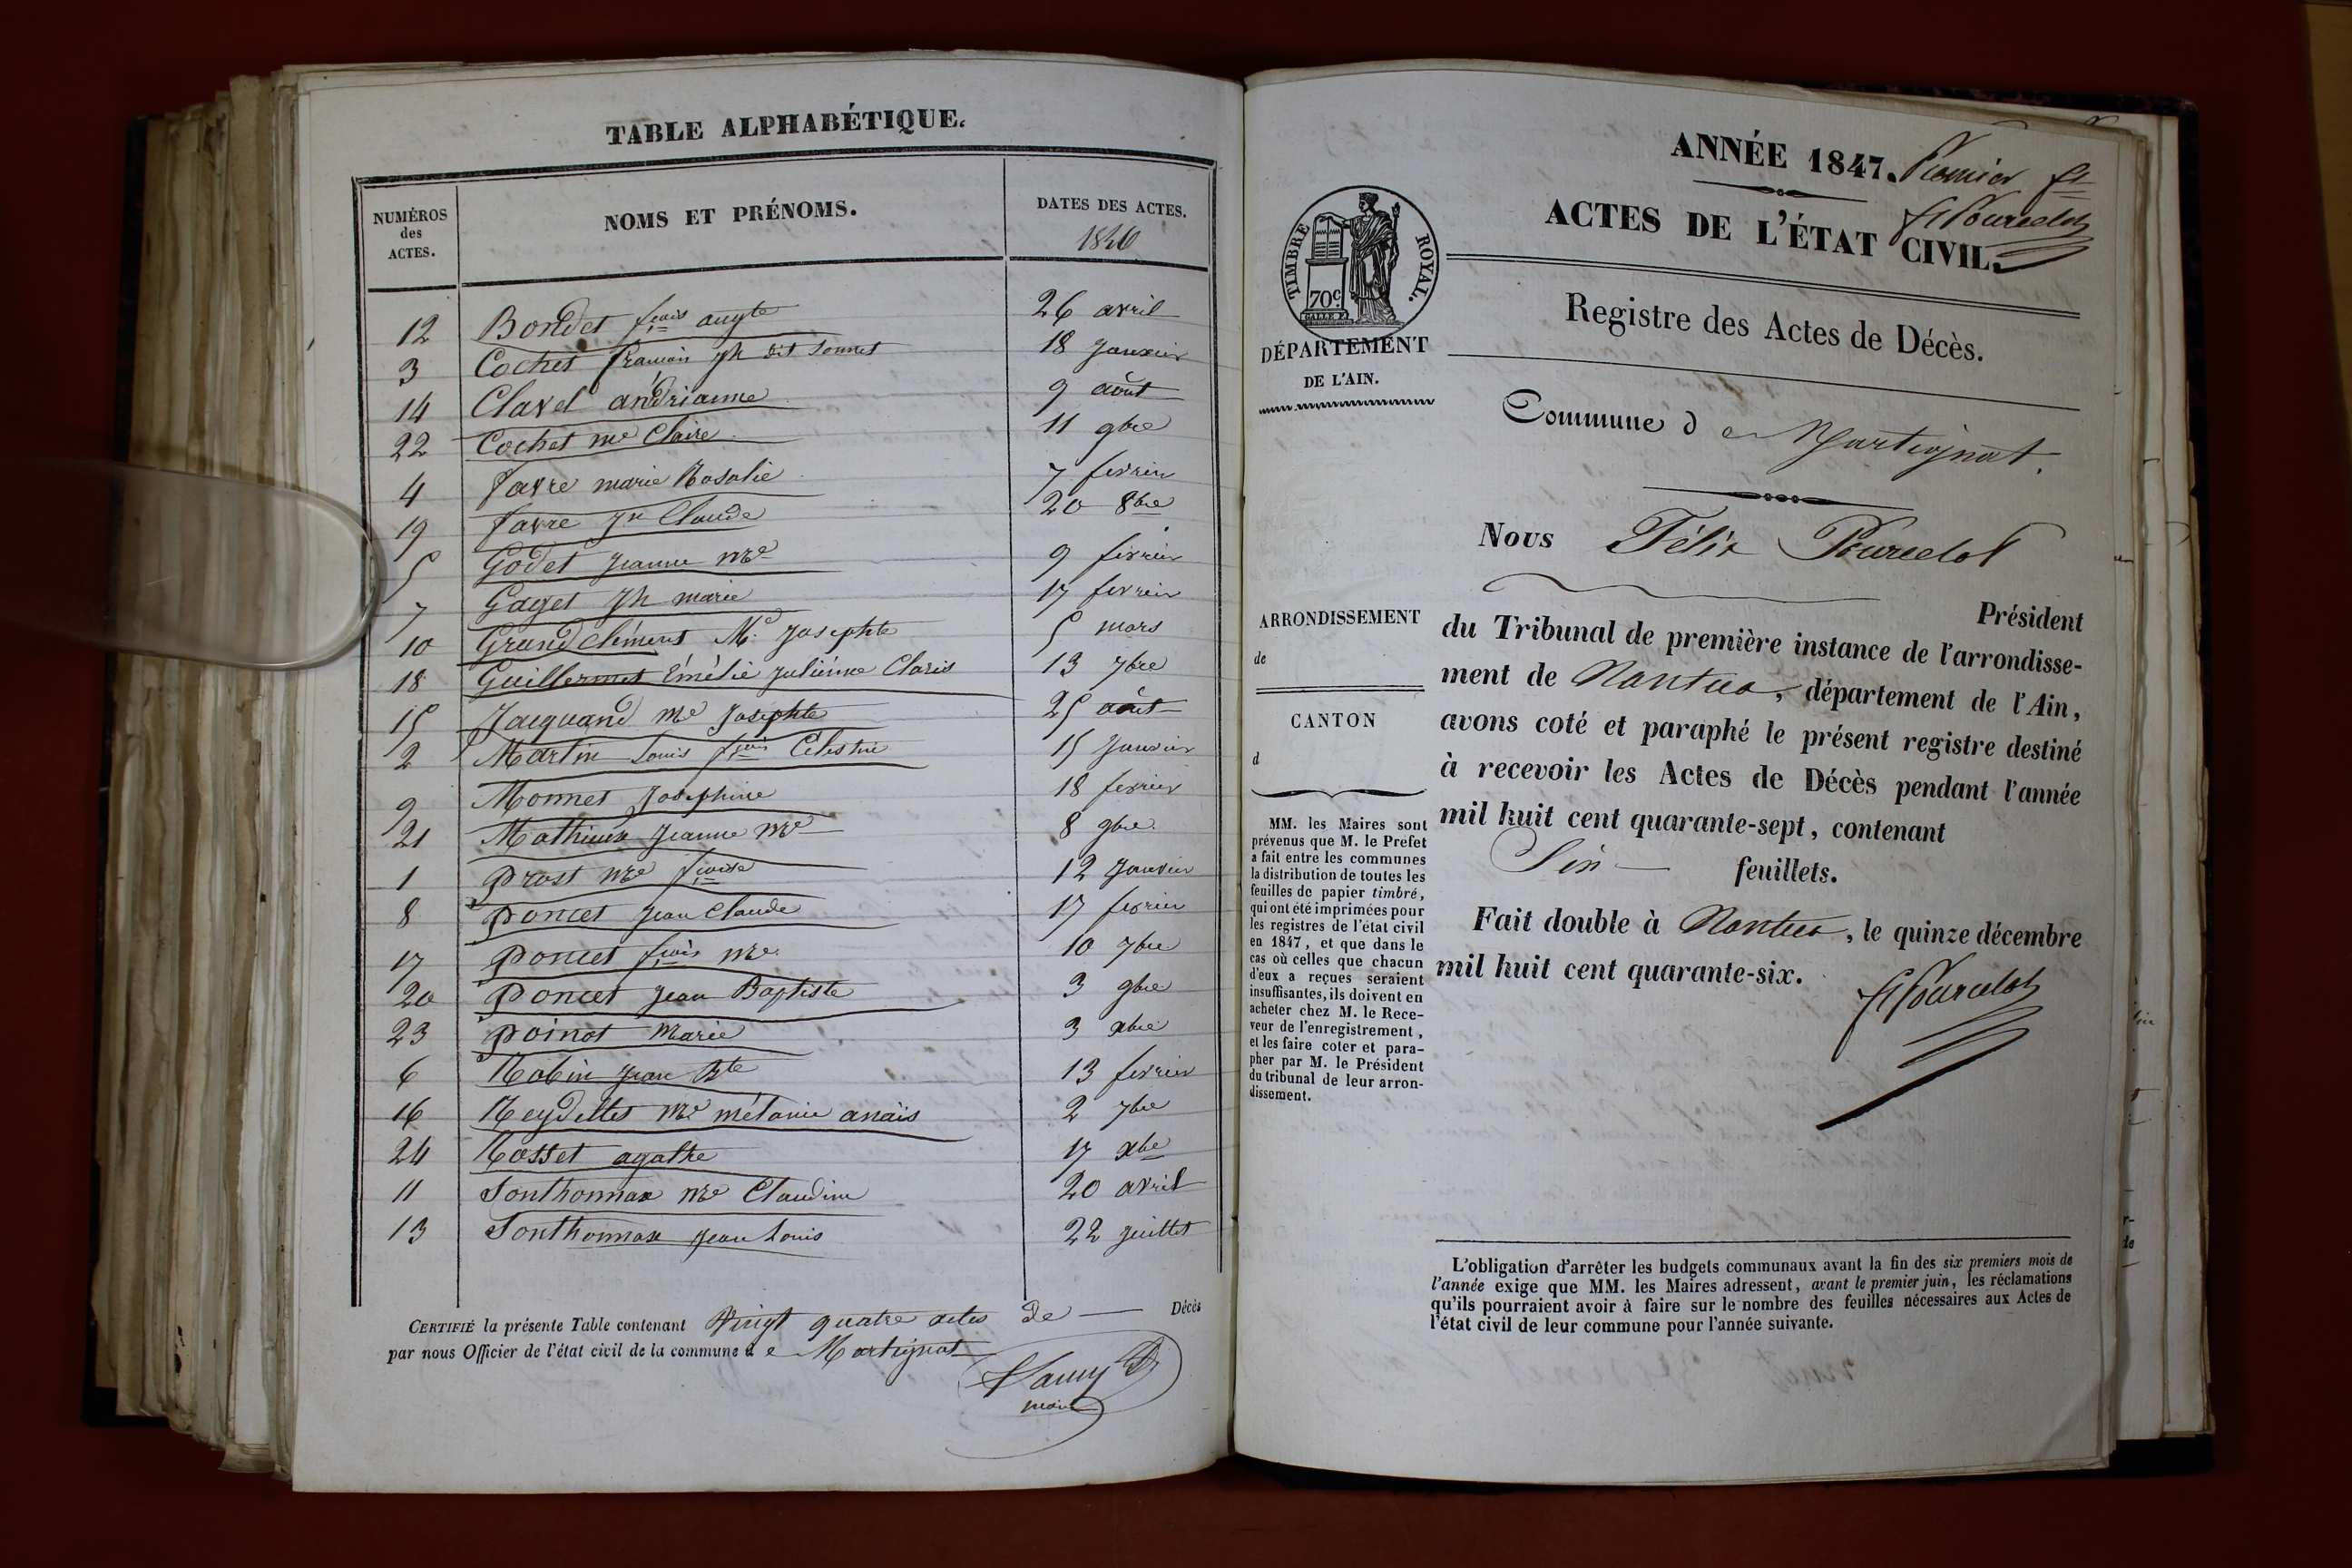 TABLE ALPHABÉTIQUE.
NUMÉROS
des
ACTES.
NOMS ET PRÉNOMS.
DATES DES ACTES.
1846
12 Bondet fçois augte 26 avril
3 Cochet françois Jh dit Sonnet 18 Janvier
14 Clavel andrianne 9 août
22 Cochet me Claire 11 9bre
4 favre marie Rosalie 7 fevrier
19 favre Jh Claude 20 8bre
5 Godet Jeanne mie 9 fevrier
7 Gaget Jh marie 17 fevrier
10 Grandclément Me Josephte 5 mars
18 Guillermet Émélie Julienne Claris 13 7bre
15 Jacquand me Josephte 25 août
2 Martin Louis fçois Célestin 15 Janvier
9 Monnet Josephine 18 fevrier
21 Mathieux Jeanne mie 8 9bre
1 Prost mie fçoise 12 Janvier
8 Poncet Jean Claude 17 fevrier
17 Poncet fçois mie 10 7bre
20 Poncet Jean Baptiste 3 9bre
23 Poinot Marie 3 xbre
6 Robin Jean Bte 13 fevrier
16 Reydellet mie mélanie anaïs 2 7bre
24 Rosset agathe 17 xbre
11 Sonthonnax mie Claudine 20 avril
13 Sonthonnax Jean Louis 22 Juillet
CERTIFIÉ la présente Table contenant Vingt quatre actes de Décès
par nous Officier de l'état civil de la commune de Martignat
maire
ANNÉE 1847. Premier ft
FPourcelot
ACTES DE L'ÉTAT CIVIL.
TIMBRE ROYAL.
70c
Registre des Actes de Décès.
DÉPARTEMENT
DE L'AIN.
Commune de Martignat.
Nous Félix Pourcelot
Président
du Tribunal de première instance de l'arrondisse-
ment de Nantua, département de l'Ain,
avons coté et paraphé le présent registre destiné
à recevoir les Actes de Décès pendant l'année
mil huit cent quarante-sept, contenant
Six feuillets.
Fait double à Nantua, le quinze décembre
mil huit cent quarante-six.
FPourcelot
ARRONDISSEMENT
de
CANTON
d
MM. les Maires sont
prévenus que M. le Préfet
a fait entre les communes
la distribution de toutes les
feuilles de papier timbré,
qui ont été imprimées pour
les registres de l'état civil
en 1847, et que dans le
cas où celles que chacun
d'eux a reçues seraient
insuffisantes, ils doivent en
acheter chez M. le Rece-
veur de l'enregistrement,
et les faire coter et para-
pher par M. le Président
du tribunal de leur arron-
dissement.
L'obligation d'arrêter les budgets communaux avant la fin des six premiers mois de
l'année exige que MM. les Maires adressent, avant le premier juin, les réclamations
qu'ils pourraient avoir à faire sur le nombre des feuilles nécessaires aux Actes de
l'état civil de leur commune pour l'année suivante.